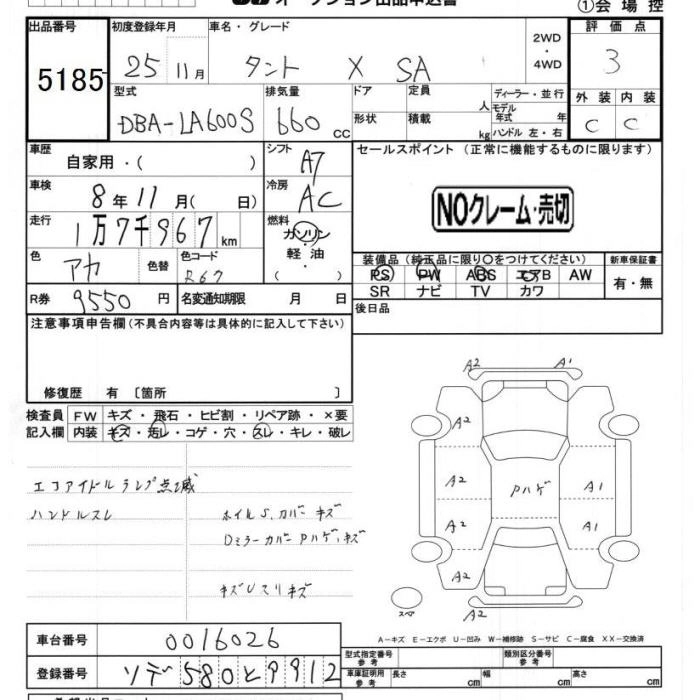 オークション出品申込書
①会場控
出品番号 初度登録年月 車名・グレード 2WD・4WD 評価点
5185 25 11月 タント X SA 3
型式 排気量 ドア 定員 人 ディーラー・並行 外装 内装
DBA-LA600S 660 cc 形状 積載 kg モデル年式 年 ハンドル 左・右 C C
車歴 自家用・( ) シフト A7 セールスポイント (正常に機能するものに限ります)
車検 8年11月( 日) 冷房 AC
NOクレーム・売切
走行 1万7千967km 燃料 ガソリン・軽油・( )
色 アカ 色替 色コード R67
装備品 (純正品に限り○をつけてください) 新車保証書
PS PW ABS エアB AW 有・無
SR ナビ TV カワ
R券 9550円 名変通知期限 月 日 後日品
注意事項申告欄(不具合内容等は具体的に記入して下さい)
修復歴 有 〔箇所 〕
検査員 FW キズ・飛石・ヒビ割・リペア跡・×要
記入欄 内装 キズ・汚レ・コゲ・穴・スレ・キレ・破レ
A2 A1
A2
A2 Pハゲ A1
A2 A1
A2
A2
スペ
エコアイドルランプ点滅
ハンドルスレ ホイルS.カバーキズ
Dミラーカバー Pハゲ、キズ
キズUスリキズ
A－キズ E－エクボ U－凹み W－補修跡 S－サビ C－腐食 XX－交換済
車台番号 0016026
型式指定番号 参考 類別区分番号 参考
登録番号 ソデ580と9912
車庫証明用 参考 長さ cm 幅 cm 高さ cm